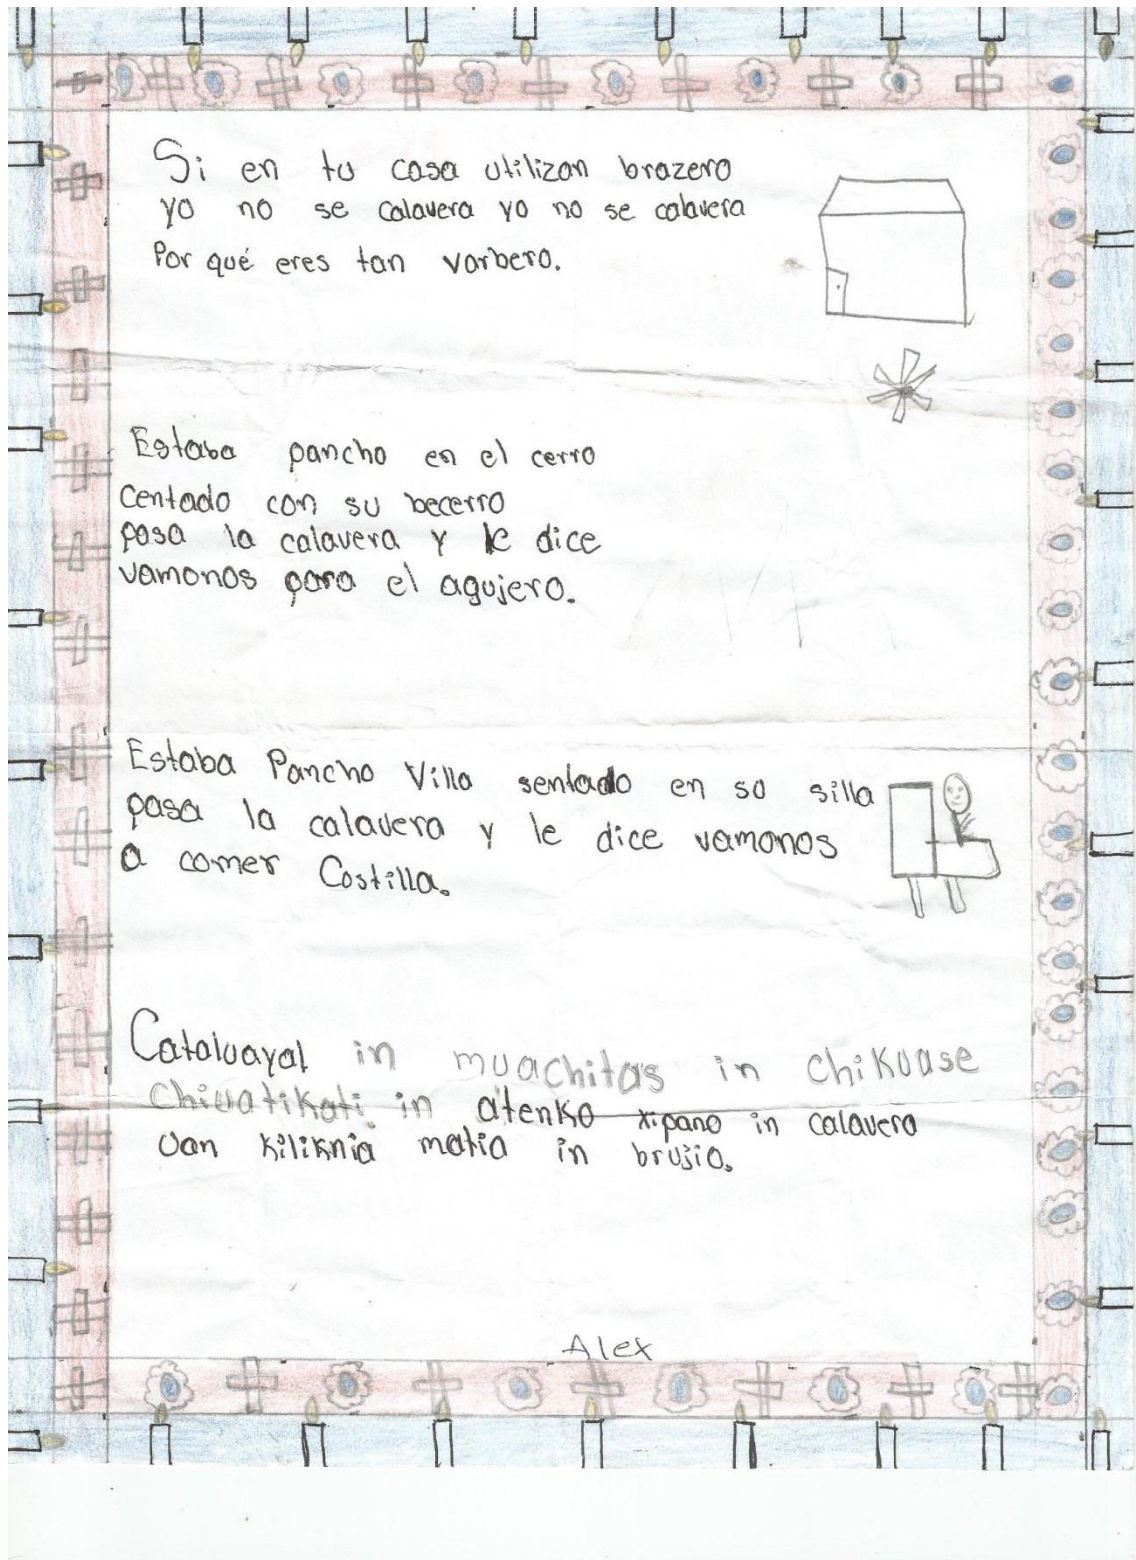 Si en tu casa utilizan brazero
yo no se calavera yo no se calavera
Por qué eres tan varbero.
Estaba pancho en el cerro
Centado con su becerro
pasa la calavera y le dice
vamonos para el agujero.
Estaba Pancho Villa sentado en so silla
pasa la calavera y le dice vamonos
a comer Costilla.
Cataluayal in muachitas in chikuase
Chiuatikati in atenko xipano in calavera
uan kiliknia matia in brujio.
Alex